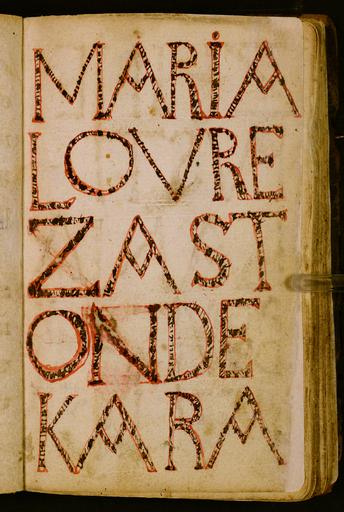 MARIA
LOVRE
ZAST
ONDE
KARA